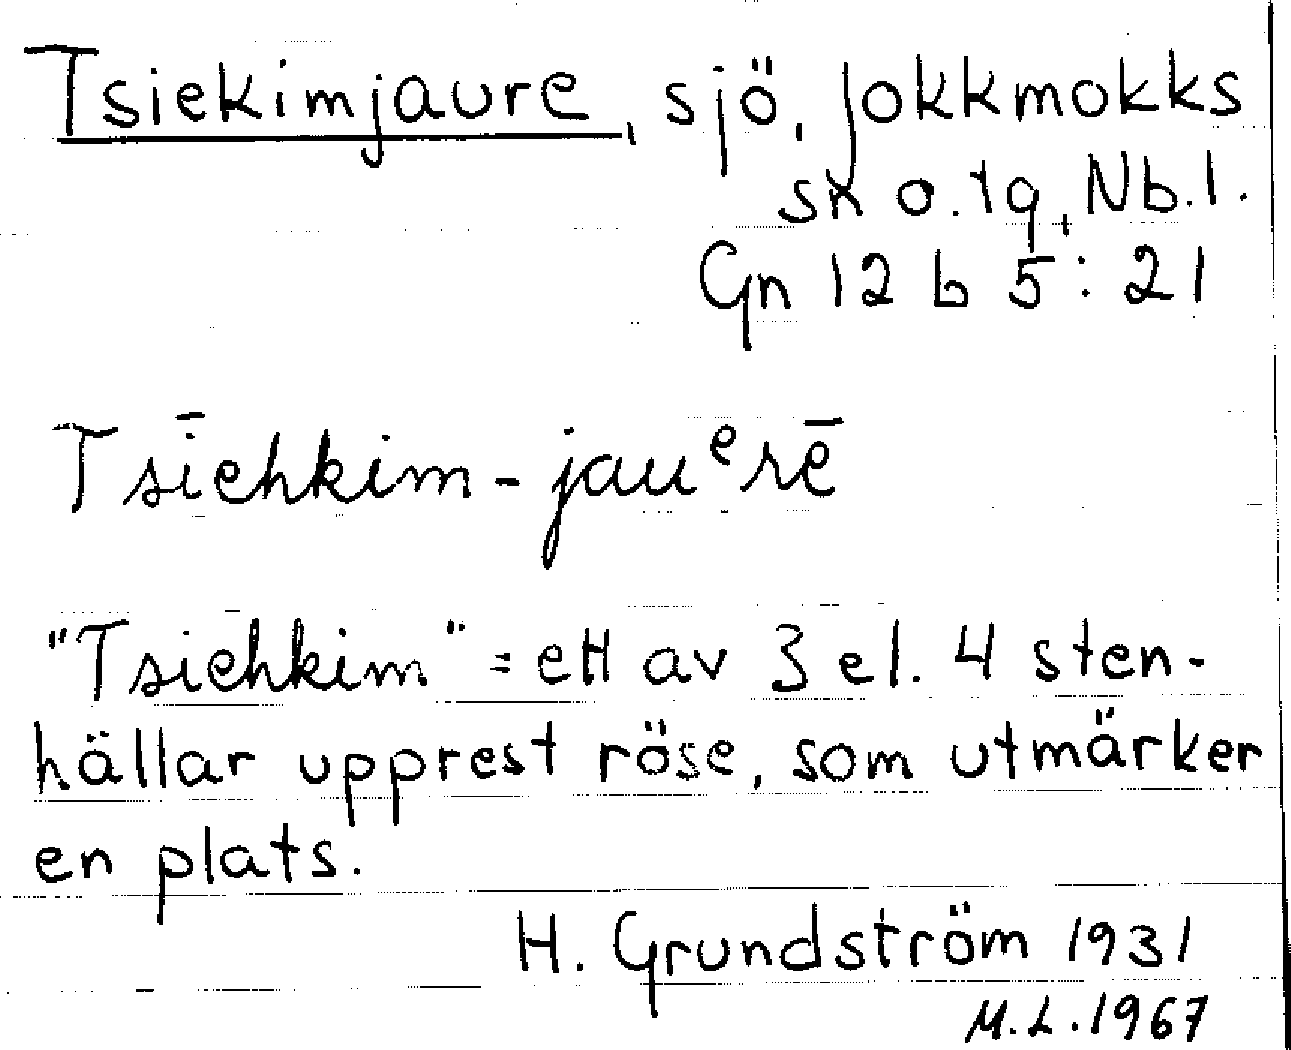 Tsiekimjaure, sjö, Jokkmokks
sn o. tg, Nb.l.
Gn 12 b 5:21
Tsīehkim-jauᵉrē
"Tsiehkim" = ett av 3 el. 4 sten-
hällar upprest röse, som utmärker
en plats.
H. Grundström 1931
M.L. 1967